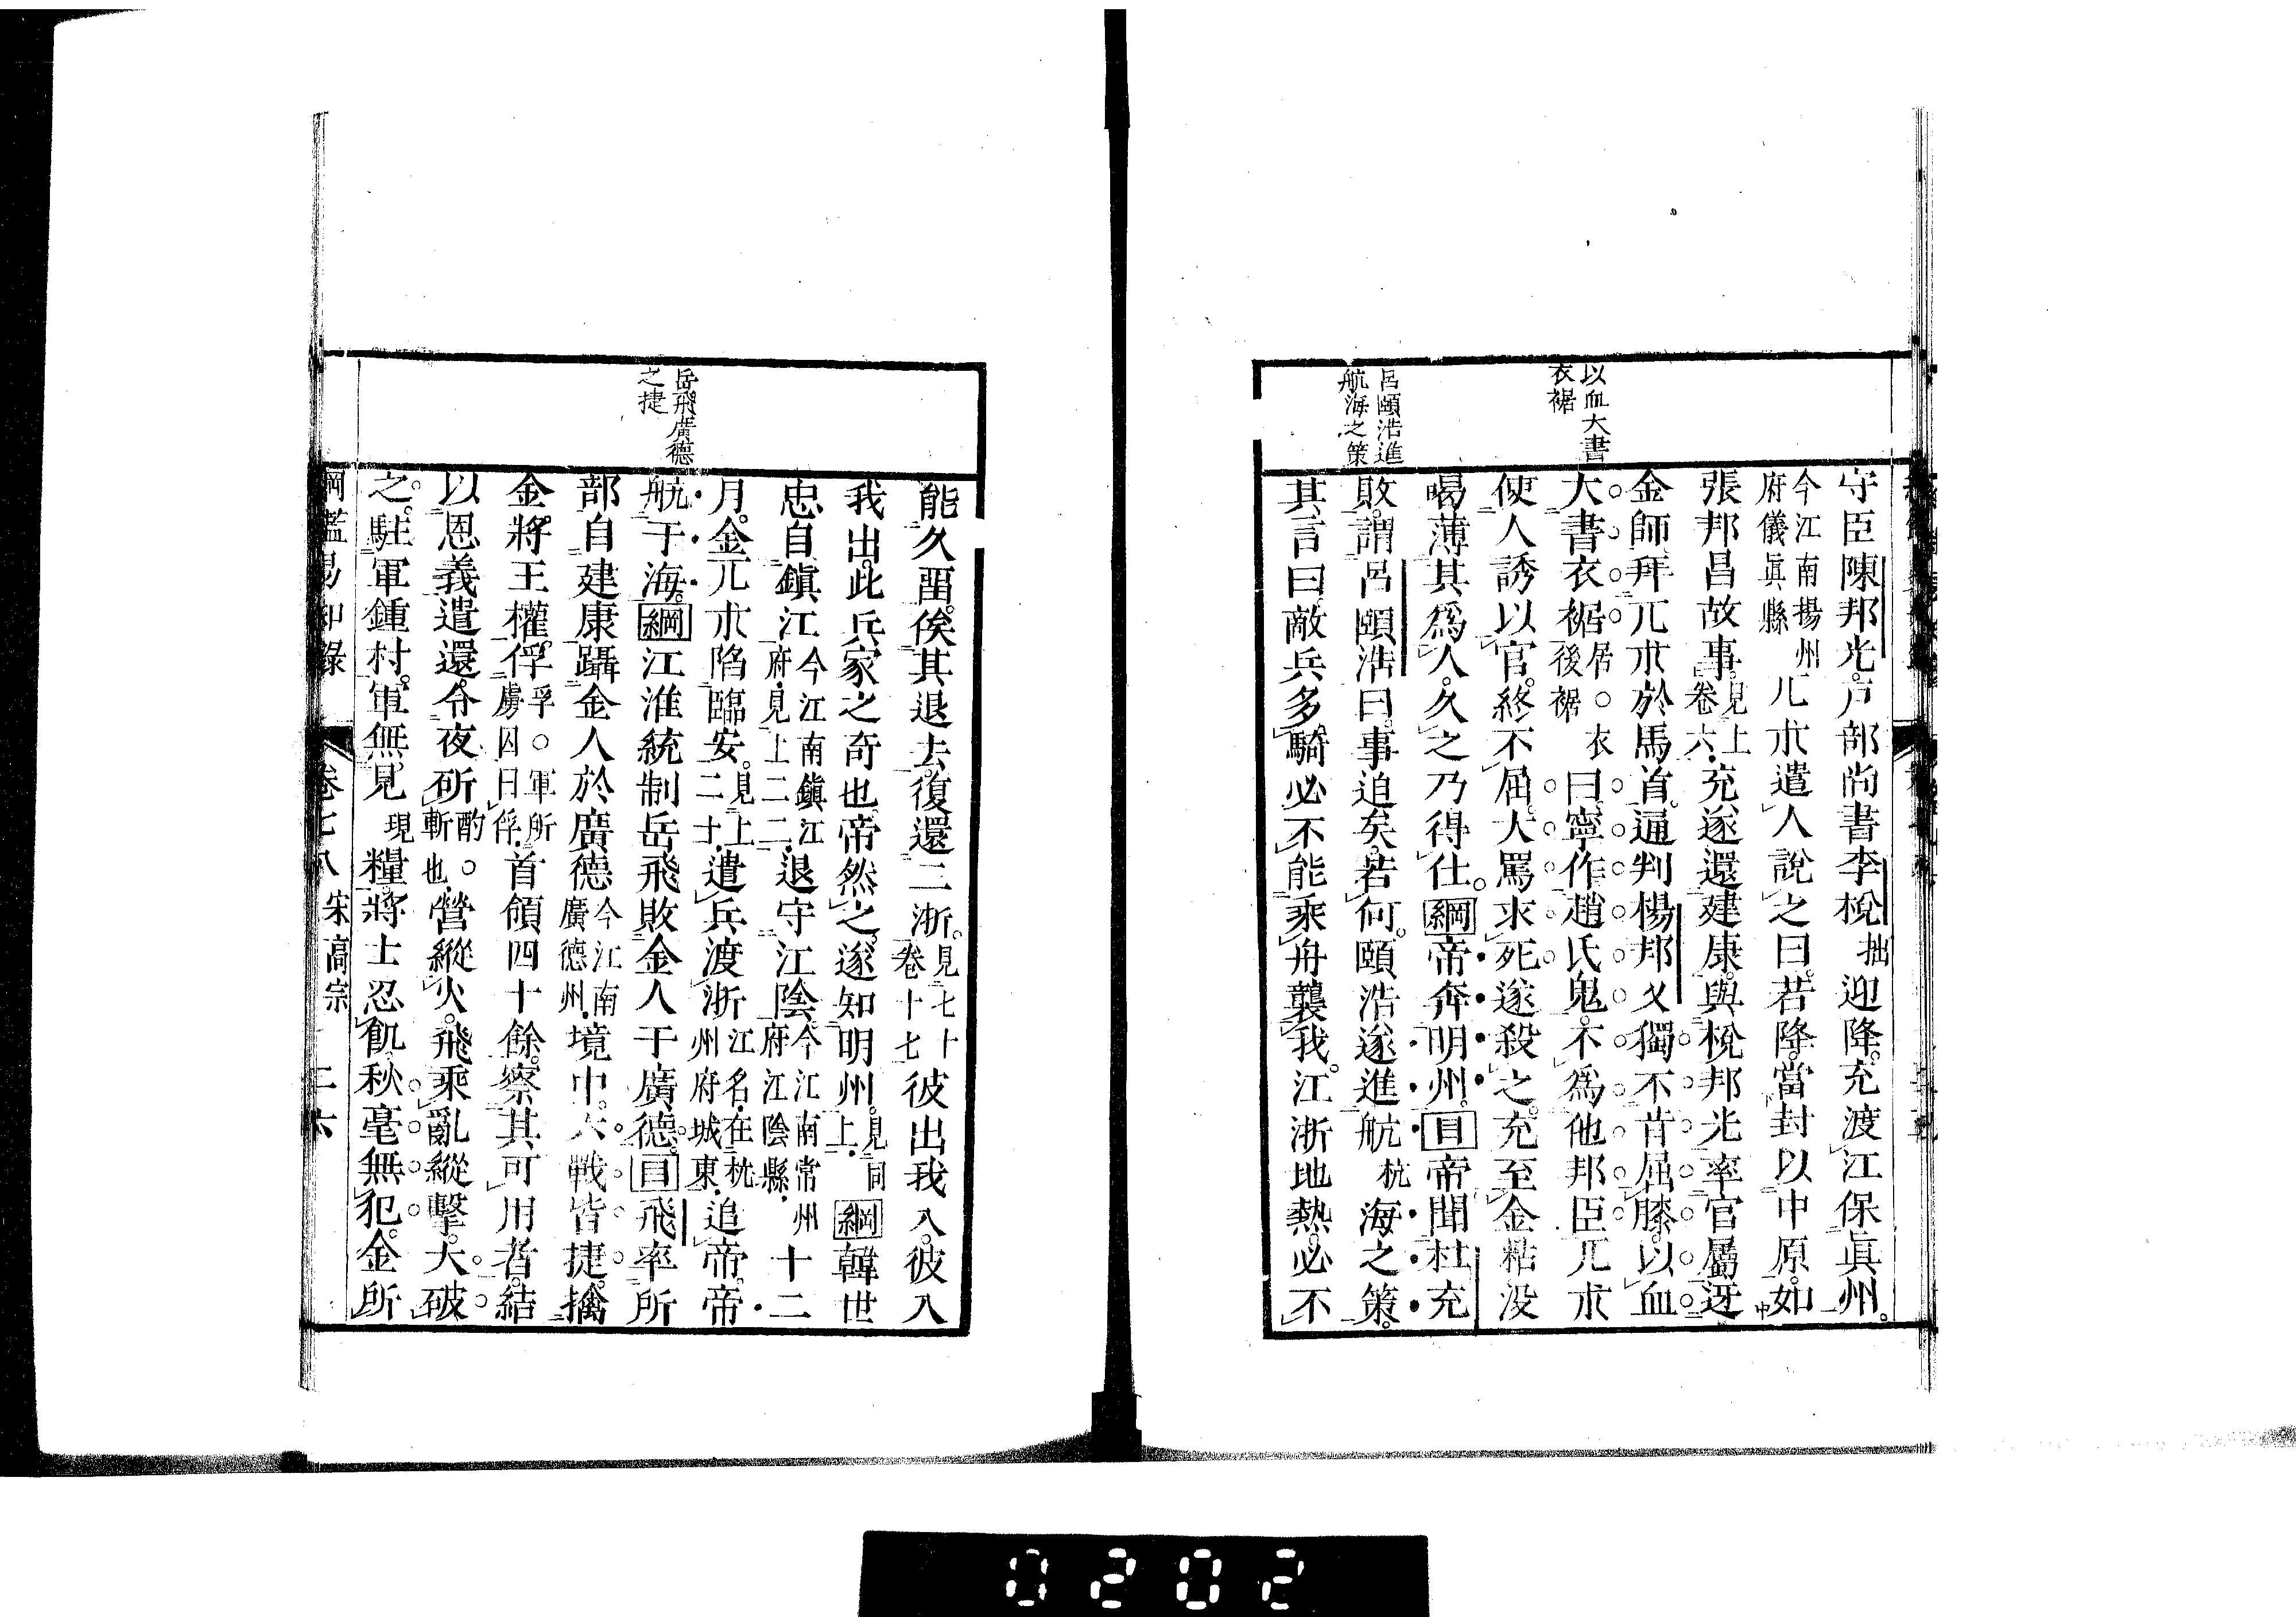 以血大書
衣裾
呂頤浩進
航海之策
守臣陳邦光。戶部尚書李梲拙迎降。充渡江保眞州。
今江南揚州府儀眞縣兀朮遣人說之曰。若降。當封以中原。如
張邦昌故事。見上卷六。充遂還建康。與梲邦光率官屬迓
金師。拜兀朮於馬首。通判楊邦乂獨不肯屈膝。以血
大書衣裾居○衣後裾曰。寧作趙氏鬼。不爲他邦臣。兀朮
使人誘以官。終不屈。大罵求死。遂殺之。充至金。粘沒
喝薄其爲人。久之乃得仕。綱帝奔明州。目帝聞杜充
敗。謂呂頤浩曰。事迫矣。若何。頤浩遂進航杭海之策。
其言曰。敵兵多騎。必不能乘舟襲我。江浙地熱。必不
岳飛廣德
之捷
能久留。俟其退去。復還二浙。見七十卷十七彼出我入。彼入
我出。此兵家之奇也。帝然之。遂如明州。見同上。綱韓世
忠自鎭江今江南鎭江府。見上二二。退守江陰。今江南常州府江陰縣。十二
月。金兀朮陷臨安。見上二十。遣兵渡浙江名。在杭州府城東。追帝。帝
航于海。綱江淮統制岳飛敗金人于廣德。目飛率所
部自建康躡金人於廣德今江南廣德州。境中。六戰皆捷。擒
金將王權。俘孚○軍所虜囚曰俘。首領四十餘。察其可用者。結
以恩義遣還。令夜斫酌○斬也。營縱火。飛乘亂縱擊。大破
之。駐軍鍾村。軍無見現糧。將士忍飢。秋毫無犯。金所
綱鑑易知錄 卷七八 宋高宗 二六
0202